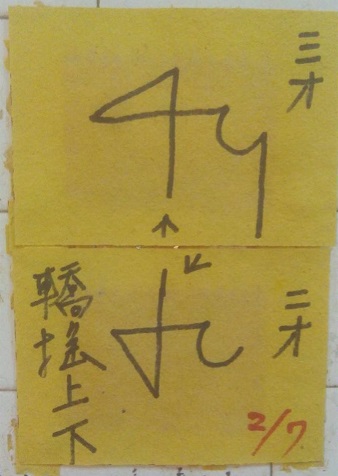 三才
二才
轎搖上下
2/7